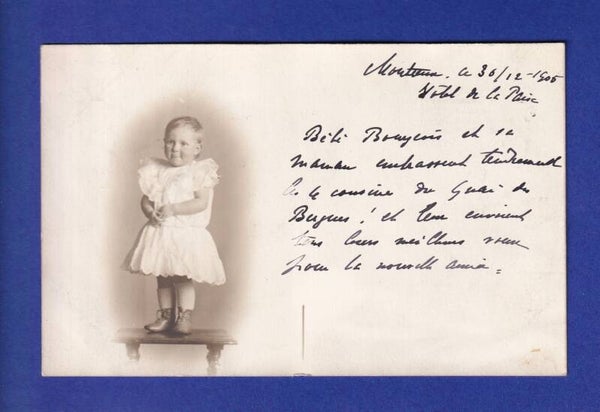 Montreux, le 30/12-1905
Hôtel de la Paix
Bébé Bourgeois et sa
maman embrassent tendrement
le cousine du Quai des
Bergues! et leur envoient
tous leurs meilleurs vœux
pour la nouvelle année.